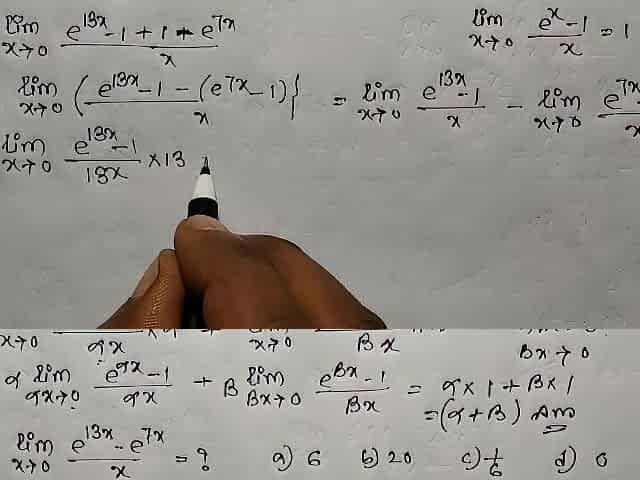 lim x→0 (e^13x - 1 + 1 - e^7x)/x lim x→0 (e^x - 1)/x = 1
lim x→0 {(e^13x - 1 - (e^7x - 1)/x} = lim x→0 (e^13x - 1)/x - lim x→0 e^7x
lim x→0 (e^13x - 1)/13x × 13
x→0 αx x→0 βx βx→0
α lim αx→0 (e^αx - 1)/αx + β lim βx→0 (e^βx - 1)/βx = α × 1 + β × 1
= (α + β) Ans
lim x→0 (e^13x - e^7x)/x = ? a) 6 b) 20 c) 1/6 d) 0